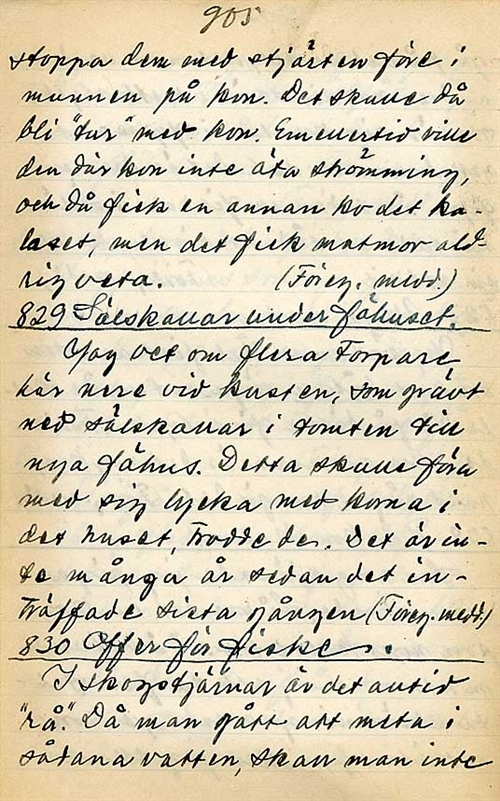 905
stoppa dem med stjärten före i
munnen på kon. Det skulle då
bli "tur" med kon. Emellertid ville
den där kon inte äta strömming,
och då fick en annan ko det ka-
laset, men det fick matmor ald-
rig veta. (Föreg. medd.)
829 Sälskallar under fähuset.
Jag vet om flera Torpare
här nere vid kusten, som grävt
ned sälskallar i tomten till
nya fähus. Detta skulle föra
med sig lycka med korna i
det huset, trodde de. Det är in-
te många år sedan det in-
träffade sista gången (Föreg. medd.)
830 Offer för fiske.
I skogstjärnar är det alltid
"rå". Då man gått att meta i
sådana vatten, skall man inte